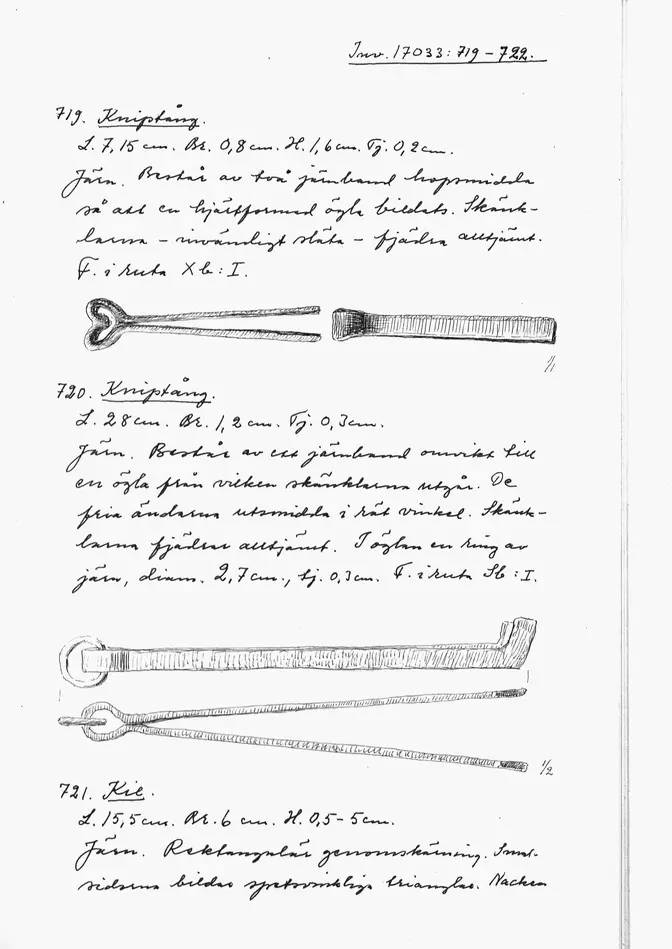 Inv. 17033: 719 – 722.
719. Kniptång.
L. 7,15 cm. Br. 0,8 cm. H. 1,6 cm. Tj. 0,2 cm.
Järn. Består av två järnband hopsmidda
så att en hjärtformad ögla bildats. Skänk-
larna – invändigt släta – fjädra alltjämt.
F. i ruta Xb : I.
1/1
720. Kniptång.
L. 28 cm. Br. 1,2 cm. Tj. 0,3 cm.
Järn. Består av ett järnband omvikt till
en ögla från vilken skänklarna utgår. De
fria ändarna utsmidda i rät vinkel. Skänk-
larna fjädrar alltjämt. I öglan en ring av
järn, diam. 2,7 cm., tj. 0,3 cm. F. i ruta Sb : I.
1/2
721. Kil.
L. 15,5 cm. Br. 6 cm. H. 0,5 – 5 cm.
Järn. Rektangulär genomskärning. Smal-
sidorna bildar spetsvinkliga trianglar. Nacken